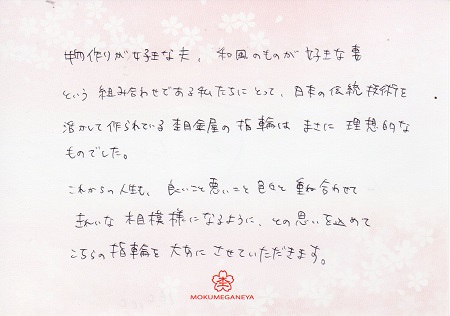 物作りが好きな夫、和風のものが好きな妻
という組み合わせである私たちにとって、日本の伝統技術を
活かして作られている杢目金屋の指輪は まさに 理想的な
ものでした。
これからの人生も、良いこと悪いこと色々と重ね合わせて
きれいな木目模様になるように、その思いを込めて
こちらの指輪を大切にさせていただきます。
杢
MOKUMEGANEYA